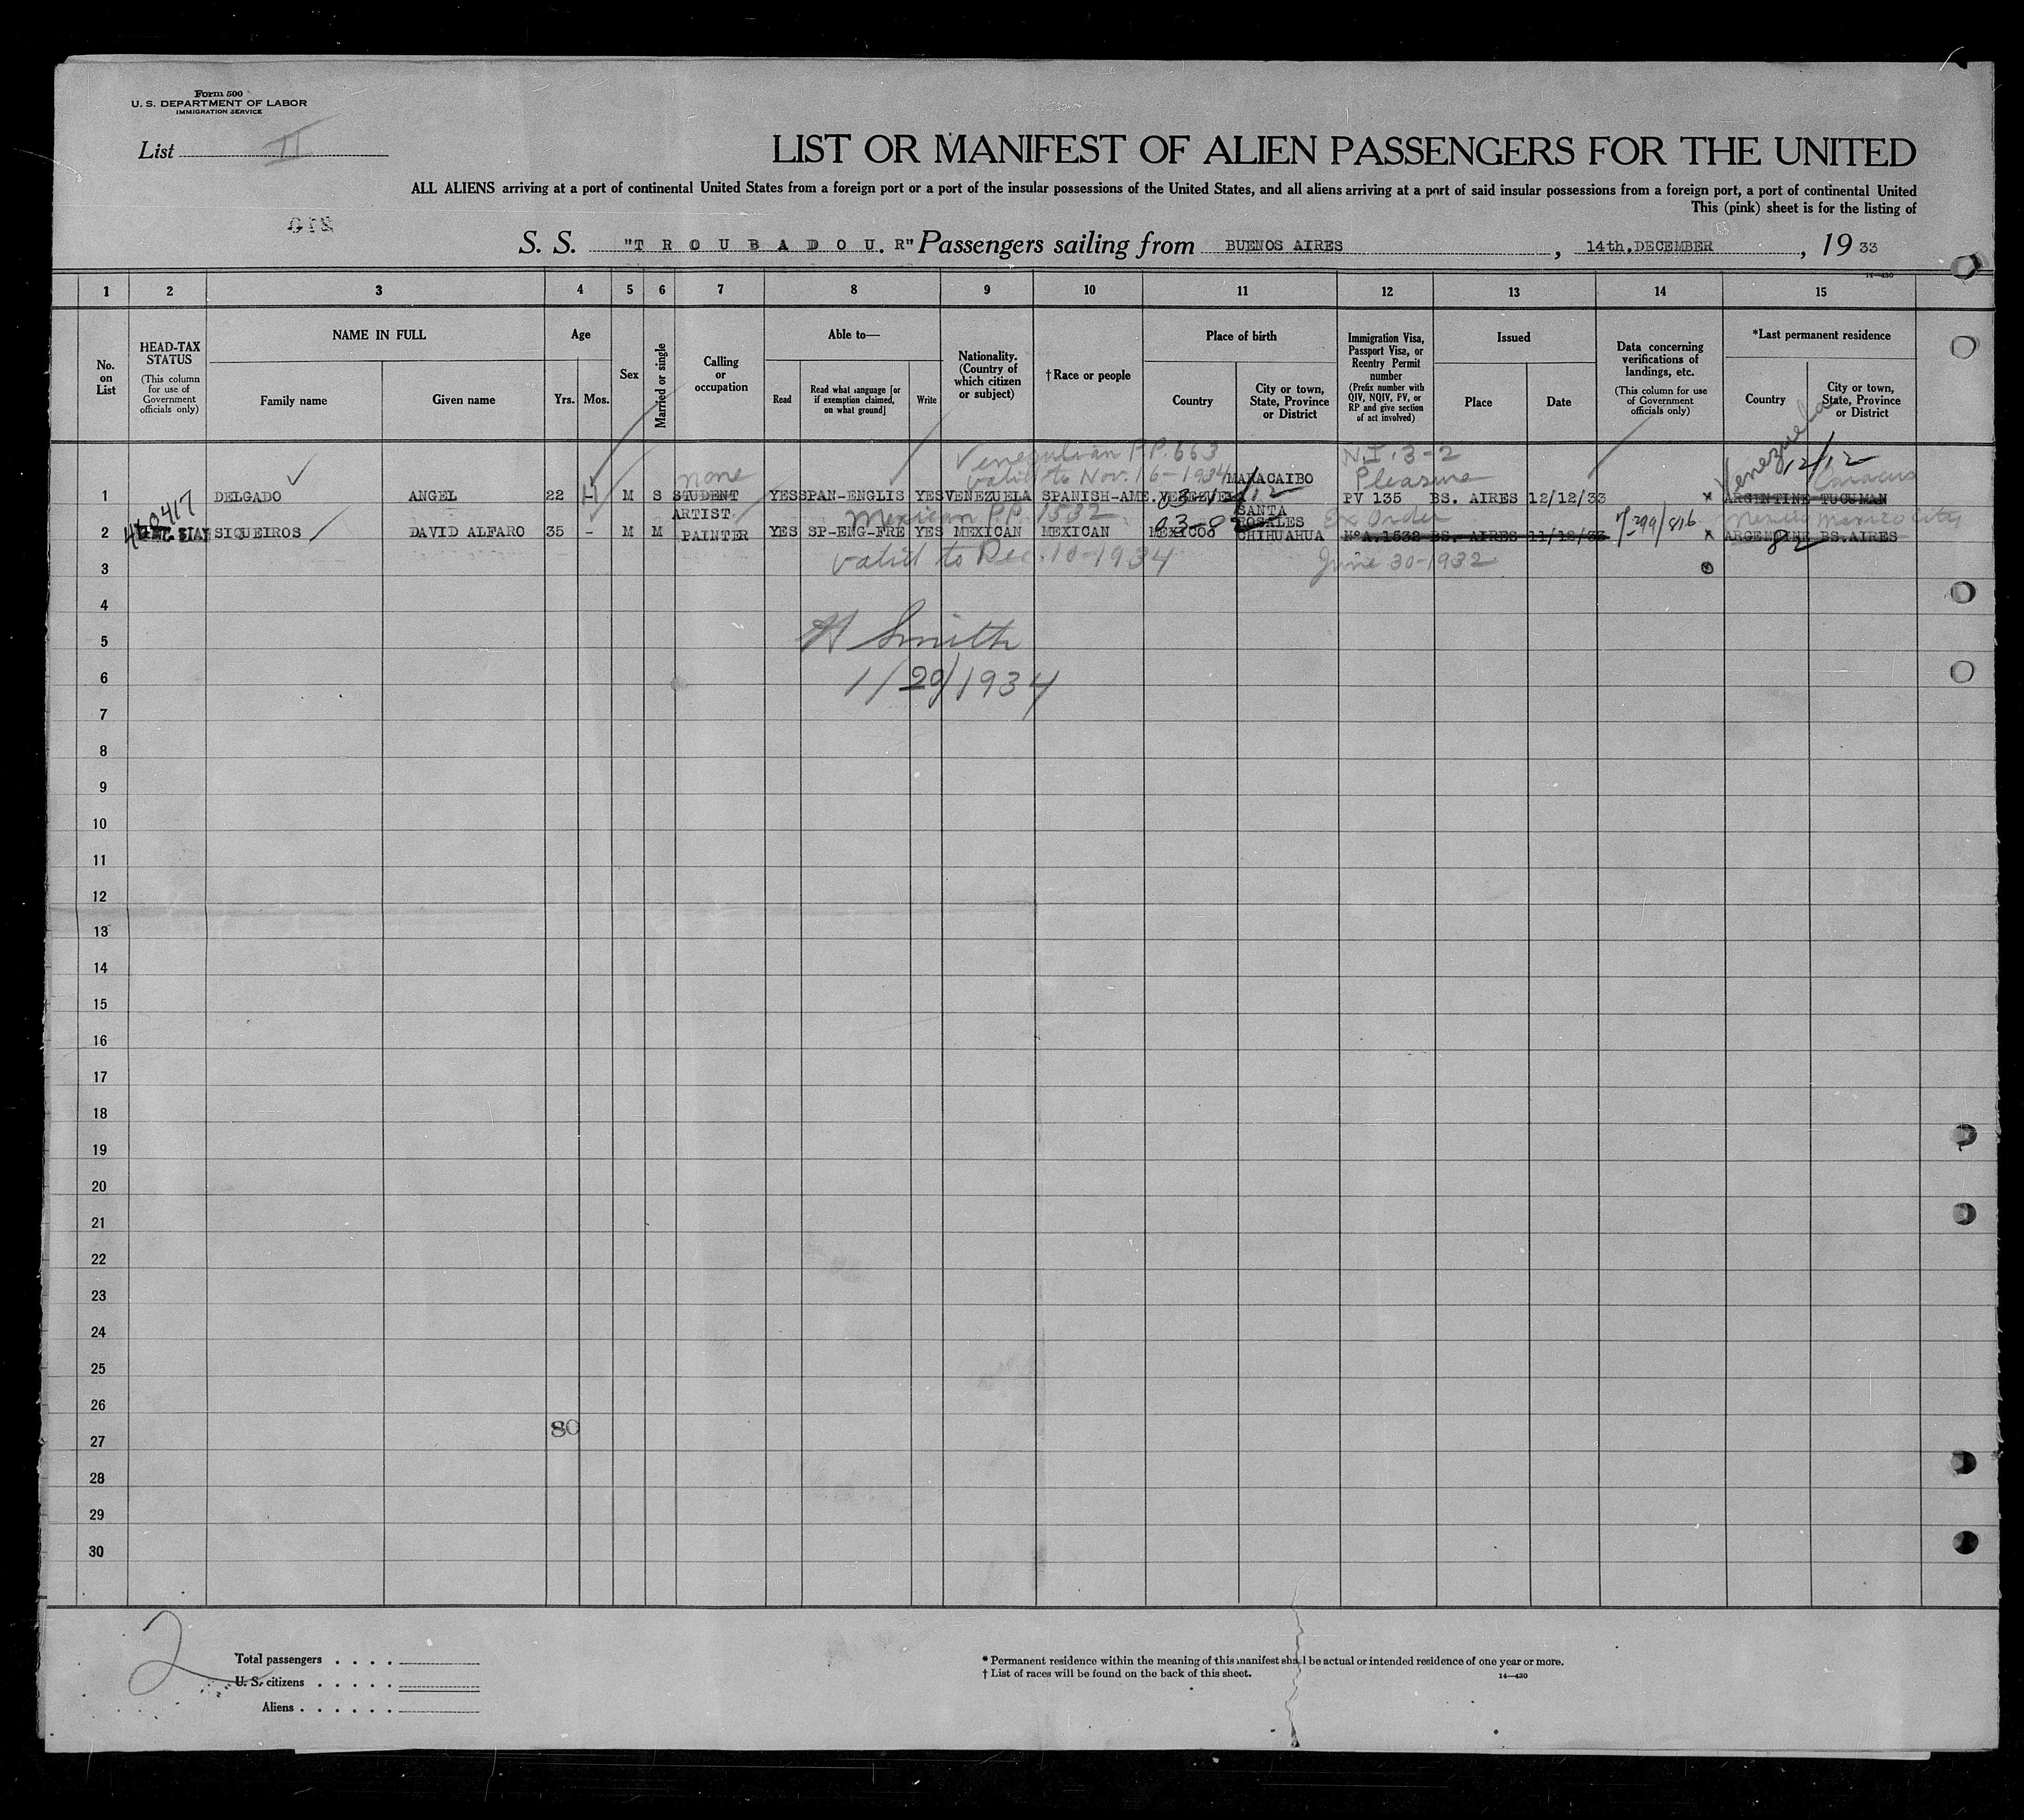 Form 500
U. S. DEPARTMENT OF LABOR
IMMIGRATION SERVICE
List II
LIST OR MANIFEST OF ALIEN PASSENGERS FOR THE UNITED
ALL ALIENS arriving at a port of continental United States from a foreign port or a port of the insular possessions of the United States, and all aliens arriving at a port of said insular possessions from a foreign port, a port of continental United
This (pink) sheet is for the listing of
S. S. "T R O U B A D O U. R" Passengers sailing from BUENOS AIRES , 14th.DECEMBER , 19 33
14—430
1 2 3 4 5 6 7 8 9 10 11 12 13 14 15
No. on List
HEAD-TAX STATUS
(This column for use of Government officials only)
NAME IN FULL
Family name
Given name
Age
Yrs. Mos.
Sex
Married or single
Calling or occupation
Able to—
Read
Read what language [or if exemption claimed, on what ground]
Write
Nationality. (Country of which citizen or subject)
† Race or people
Place of birth
Country
City or town, State, Province or District
Immigration Visa, Passport Visa, or Reentry Permit number
(Prefix number with QIV, NQIV, PV, or RP and give section of act involved)
Issued
Place
Date
Data concerning verifications of landings, etc.
(This column for use of Government officials only)
*Last permanent residence
Country
City or town, State, Province or District
Venezulian P.P. 663
valid to Nov. 16-1934
none
N.I. 3-2
Pleasure
Venezuela
12/12
Caracas
MARACAIBO
1 DELGADO ANGEL 22 M S STUDENT YES SPAN-ENGLIS YES VENEZUELA SPANISH-AME. VENEZUELA PV 135 BS. AIRES 12/12/33 x ARGENTINE TUCUMAN
Mexican P.P. 1532
Ex Order
Mexico Mexico City
ARTIST
SANTA
ROSALES
2 SIQUEIROS DAVID ALFARO 35 - M M PAINTER YES SP-ENG-FRE YES MEXICAN MEXICAN MEXICO CHIHUAHUA NºA.1532 BS. AIRES 11/12/33 7-299/816 x ARGENTINE BS.AIRES
valid to Dec. 10-1934
June 30-1932
3
4
5
H Smith
6
1/29/1934
7
8
9
10
11
12
13
14
15
16
17
18
19
20
21
22
23
24
25
26
80
27
28
29
30
2
Total passengers
U. S. citizens
Aliens
* Permanent residence within the meaning of this manifest shall be actual or intended residence of one year or more.
† List of races will be found on the back of this sheet.
14—430